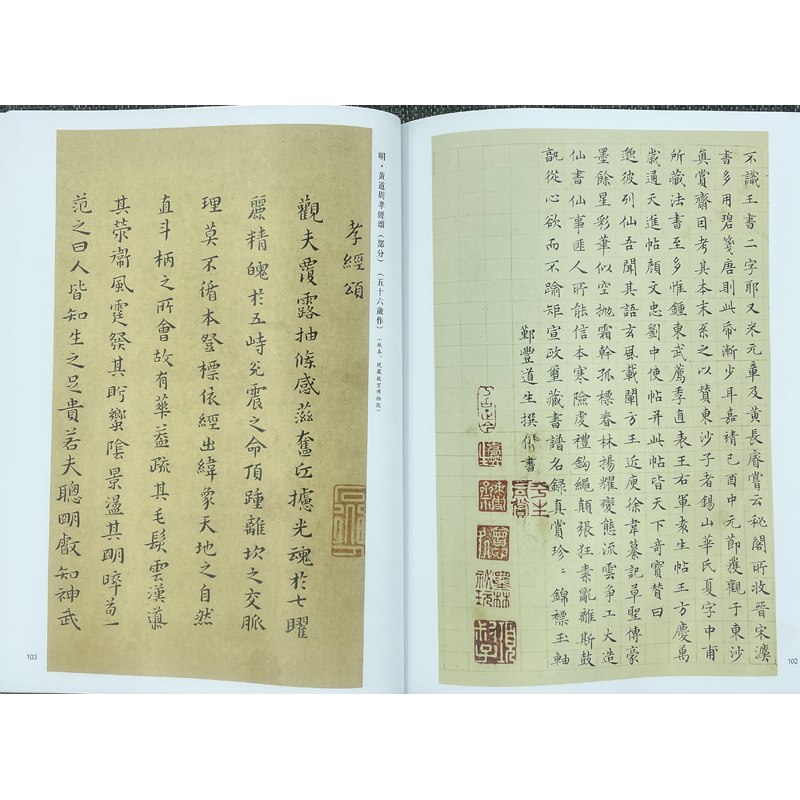 不識王書二字耶又米元章及黃長睿嘗云秘閣所收晉宋瀆
書多用碧箋唐則此帋漸少耳嘉靖己酉中元節獲觀于東沙
真賞齋因考其本末系之以贊東沙子者錫山華氏夏字中甫
所藏法書至多惟鍾東武薦季直表王右軍袁生帖王方慶萬
歲通天進帖顏文忠劉中使帖并此帖皆天下奇寶贊曰
邈彼列仙吾聞其語玄風載闡方王近庾徐韋纂記草聖傳豪
墨餘星彩華似空拋霜幹孤標春林揚耀變態流雲爭工大造
仙書仙事匪人所能信本寒險虔禮鈎繩顛張狂素亂離斯鼓
從心欲而不踰矩宣政璽藏書譜名録真賞珍〻錦褾玉軸
鄞豐道生撰併書
102
明·黃道周孝經頌（部分）（五十六歲作）（紙本，現藏故宮博物院）
孝經頌
觀夫覆露抽條感滋奮丘攄光魂於七曜
麗精魄於五峙兊震之命頂踵離坎之交脈
理莫不循本登標依經出緯象天地之自然
直斗柄之所會故有華蓋疏其毛髮雲漢導
其榮衞風霆發其肸蠁陰景盪其明晬
范之曰人皆知生之足貴若夫聰明叡知神武
103